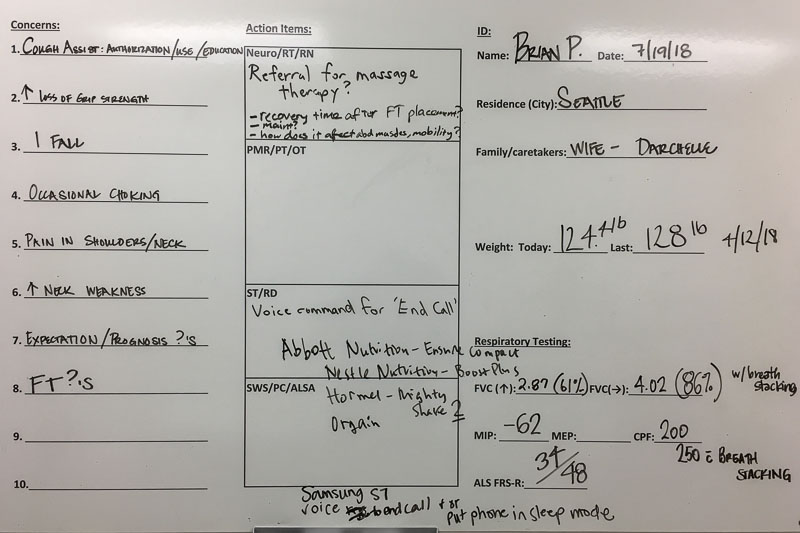 Concerns:
1. COUGH ASSIST: AUTHORIZATION/USE/EDUCATION
2. ↑ LOSS OF GRIP STRENGTH
3. 1 FALL
4. OCCASIONAL CHOKING
5. PAIN IN SHOULDERS/NECK
6. ↑ NECK WEAKNESS
7. EXPECTATION/PROGNOSIS ?'S
8. FT ?'S
9.
10.
Action Items:
Neuro/RT/RN
Referral for massage
therapy?
- recovery time after FT placement?
- maint?
- how does it affect abd muscles, mobility?
PMR/PT/OT
ST/RD
Voice command for 'End Call'
Abbott Nutrition - Ensure Compact
Nestle Nutrition - Boost Plus
SWS/PC/ALSA
Hormel - Mighty
Shake 2
Orgain
Samsung S7
voice to end call + or
put phone in sleep mode
ID:
Name: BRIAN P. Date: 7/19/18
Residence (City): SEATTLE
Family/caretakers: WIFE - DARCHELLE
Weight: Today: 124.4 lb Last: 128 lb 4/12/18
Respiratory Testing:
FVC (↑): 2.87 (61%) FVC(→): 4.02 (86%) w/breath
stacking
MIP: -62 MEP: CPF: 200
250 c̄ BREATH
STACKING
ALS FRS-R: 34/48